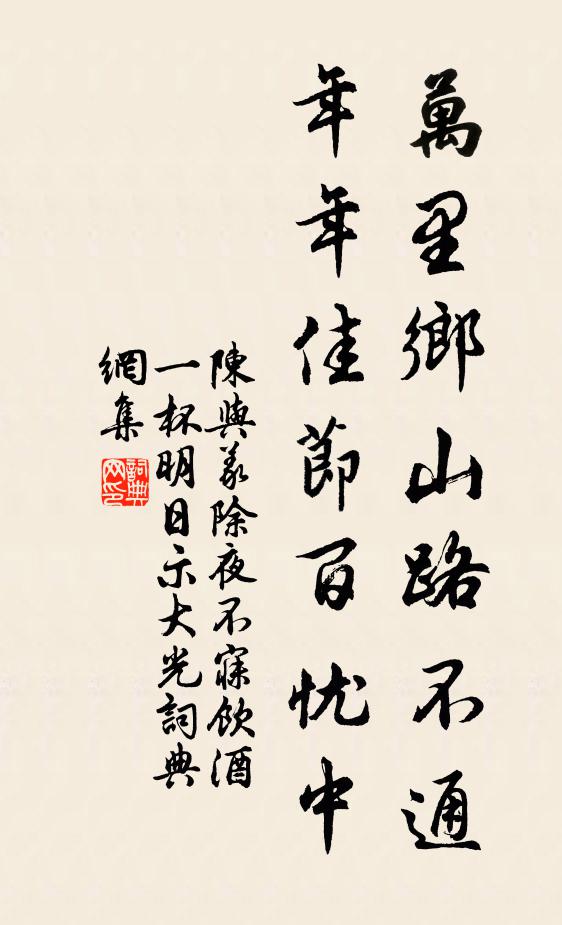 萬里鄉山路不通
年年佳節百忧中
陳與義除夜不寐飲酒
一杯明日示大光詞典
網集
詞典网印